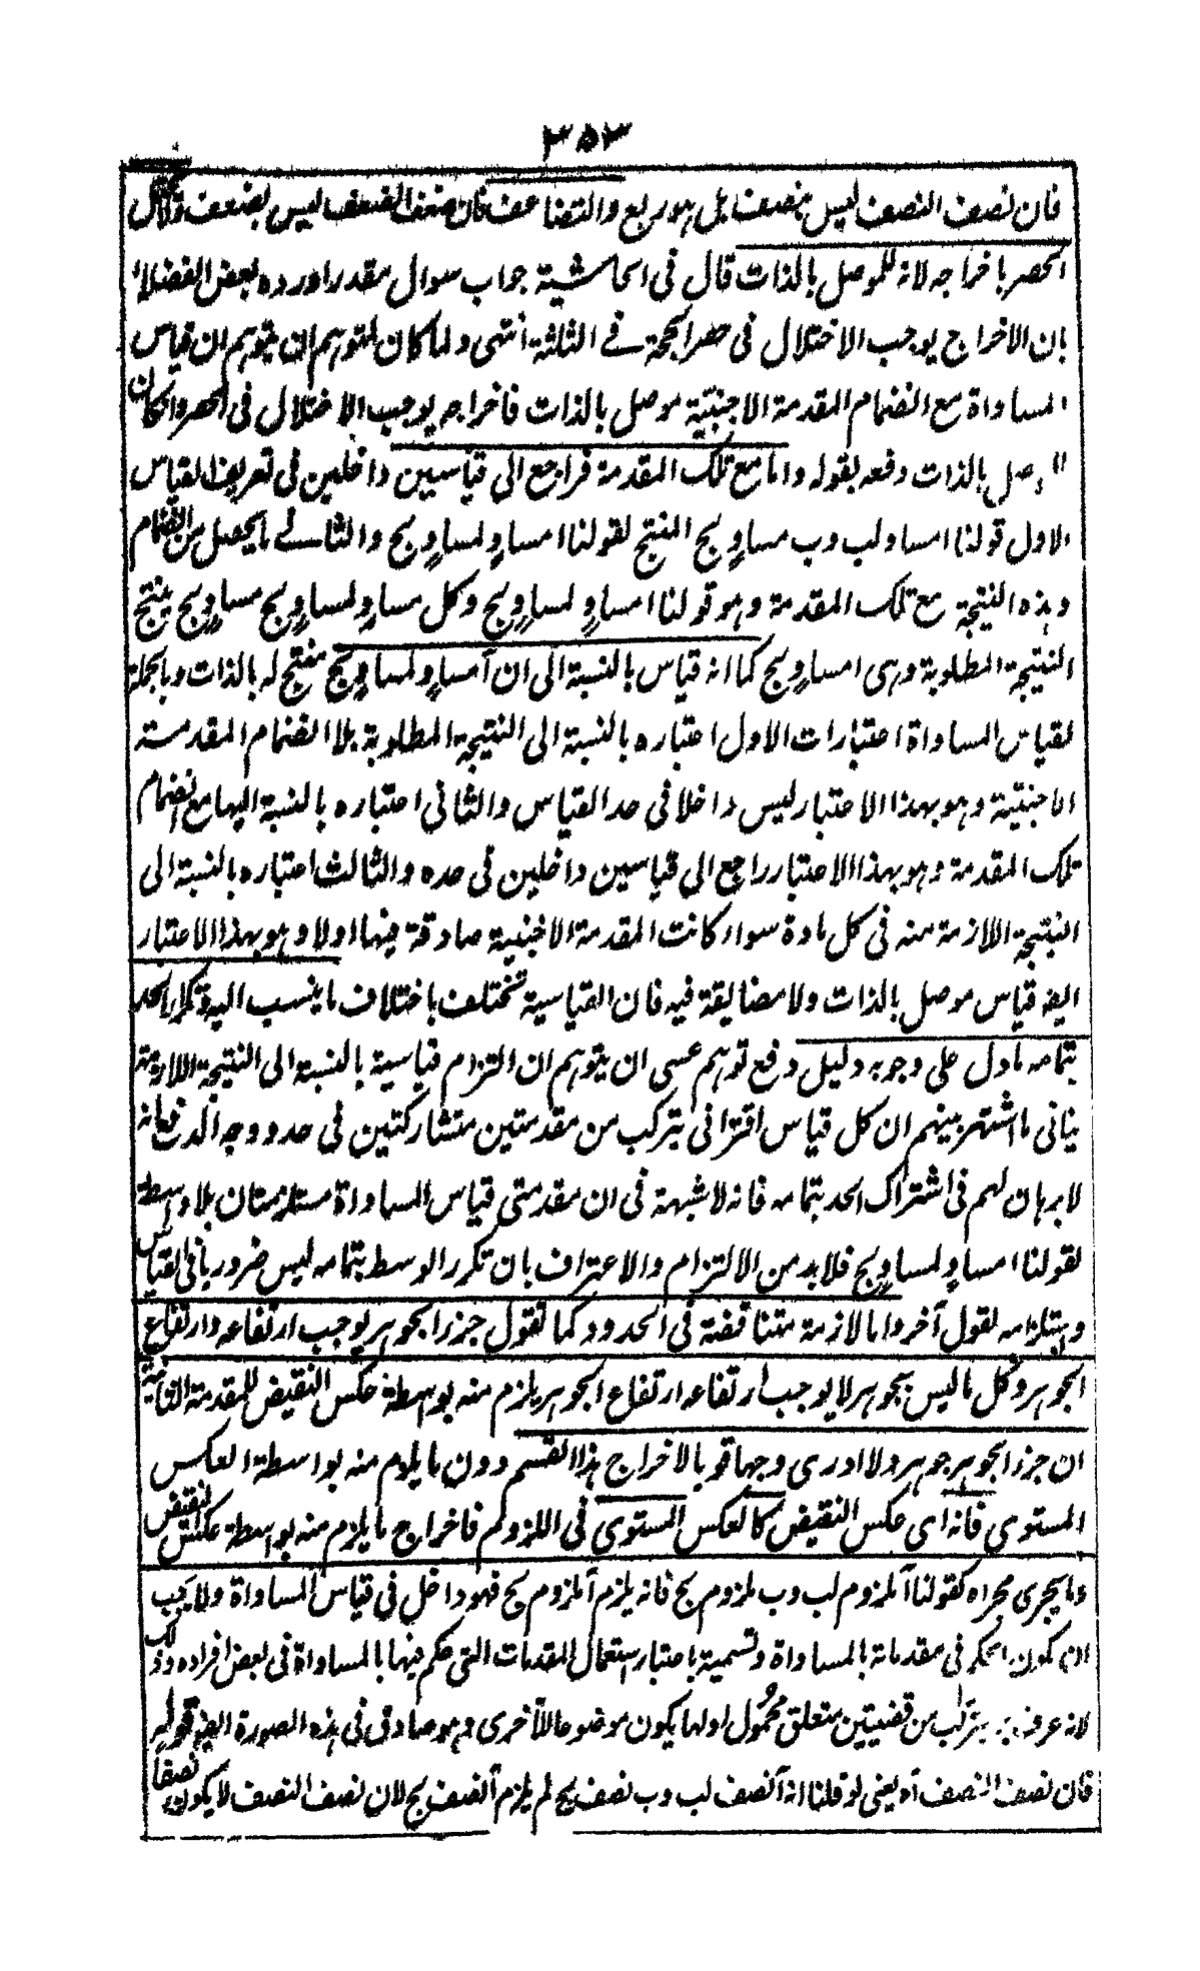 ٣٥٣
فان نصف النصف ليس بنصف بل هو ربع والتضاعف فان ضعف الضعف ليس بضعف ولاتخل
الحصر باخراجه لانه للموصل بالذات قال في الحاشية جواب سوال مقدر اورده بعض الفضلاء
بان الاخراج يوجب الاختلال في حصر الحجة في الثلثة انتهى ولما كان لمتوهم ان يتوهم ان قياس
المساواة مع انضمام المقدمة الاجنبية موصل بالذات فاخراجه يوجب الاختلال في الحصر والكان
الموصل بالذات دفعه بقوله واما مع تلك المقدمة فراجع الى قياسين داخلين في تعريف القياس
الاول قولنا ا مساو لب وب مساوٍ لج المنتج لقولنا ا مساوٍ لمساوٍ لج والثاني ما يحصل من انضمام
وهذه النتيجة مع تلك المقدمة وهو قولنا ا مساوٍ لمساوٍ لج وكل مساوٍ لمساوٍ لج مساوٍ لج ينتج
النتيجة المطلوبة وهى ا مساوٍ لج كما انه قياس بالنسبة الى ان آ مساوٍ لمساوٍ لج منتج له بالذات وبالجملة
لقياس المساواة اعتبارات الاول اعتباره بالنسبة الى النتيجة المطلوبة بلا انضمام المقدمة
الاجنبية وهو بهذا الاعتبار ليس داخلا في حد القياس والثاني اعتباره بالنسبة اليها مع انضمام
تلك المقدمة وهو بهذا الاعتبار راجع الى قياسين داخلين في حده والثالث اعتباره بالنسبة الى
النتيجة اللازمة منه في كل مادة سواء كانت المقدمة الاجنبية صادقة فيها اولا وهو بهذا الاعتبار
ايضه قياس موصل بالذات ولا مضايقة فيه فان القياسية تختلف باختلاف ما ينسب اليه وتكرار الحد
بتمامه مادل على وجوبه دليل دفع توهم عسى ان يتوهم ان التزام قياسية بالنسبة الى النتيجة اللازمة
ينافي ما اشتهر بينهم ان كل قياس اقتراني يتركب من مقدمتين متشاركتين في حد ووجه الدفع انه
لا برهان لهم في اشتراك الحد بتمامه فانه لا شبهة في ان مقدمتي قياس المساواة مستلزمتان بلا واسطة
لقولنا ا مساوٍ لمساوٍ لج فلابد من الالتزام والاعتراف بان تكرر الوسط بتمامه ليس ضروريا في القياس
وبتلزامه لقول آخر واما لازمة متناقضة في الحدود كما تقول جزء الجوهر يوجب ارتفاعه وارتفاع
الجوهر وكل ما ليس بجوهر لا يوجب ارتفاعه ارتفاع الجوهر يلزم منه بواسطة عكس النقيض للمقدمة الثانية
ان جزء الجوهر جوهر ولا ادرى وجها قويا لاخراج هذا القسم دون ما يلزم منه بواسطة العكس
المستوي فانه اى عكس النقيض كالعكس المستوى في اللزوم فاخراج ما يلزم منه بواسطة عكس النقيض
وما يجرى مجراه كقولنا آ ملزوم لب وب ملزوم لج فانه يلزم آ ملزوم لج فهو داخل في قياس المساواة ولا يجب
ان يكون الحكم في مقدماته بالمساواة وتسمية باعتبار استعمال المقدمات التي حكم فيها بالمساواة في بعض افراده وذلك
لانه عرف يتركب من قضيتين متعلق محمول اولها يكون موضوعا للآخرى وهو صادق في هذه الصورة ايضه قوله
فان نصف النصف آه يعني لو قلنا انه آ نصف لب وب نصف لج لم يلزم آ نصف لج لان نصف النصف لا يكون نصفا